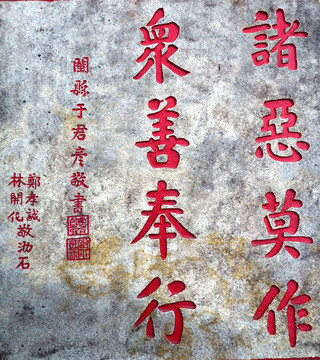 諸惡莫作
衆善奉行
閩縣于君彥敬書
鄭孝誠
林開化敬泐石